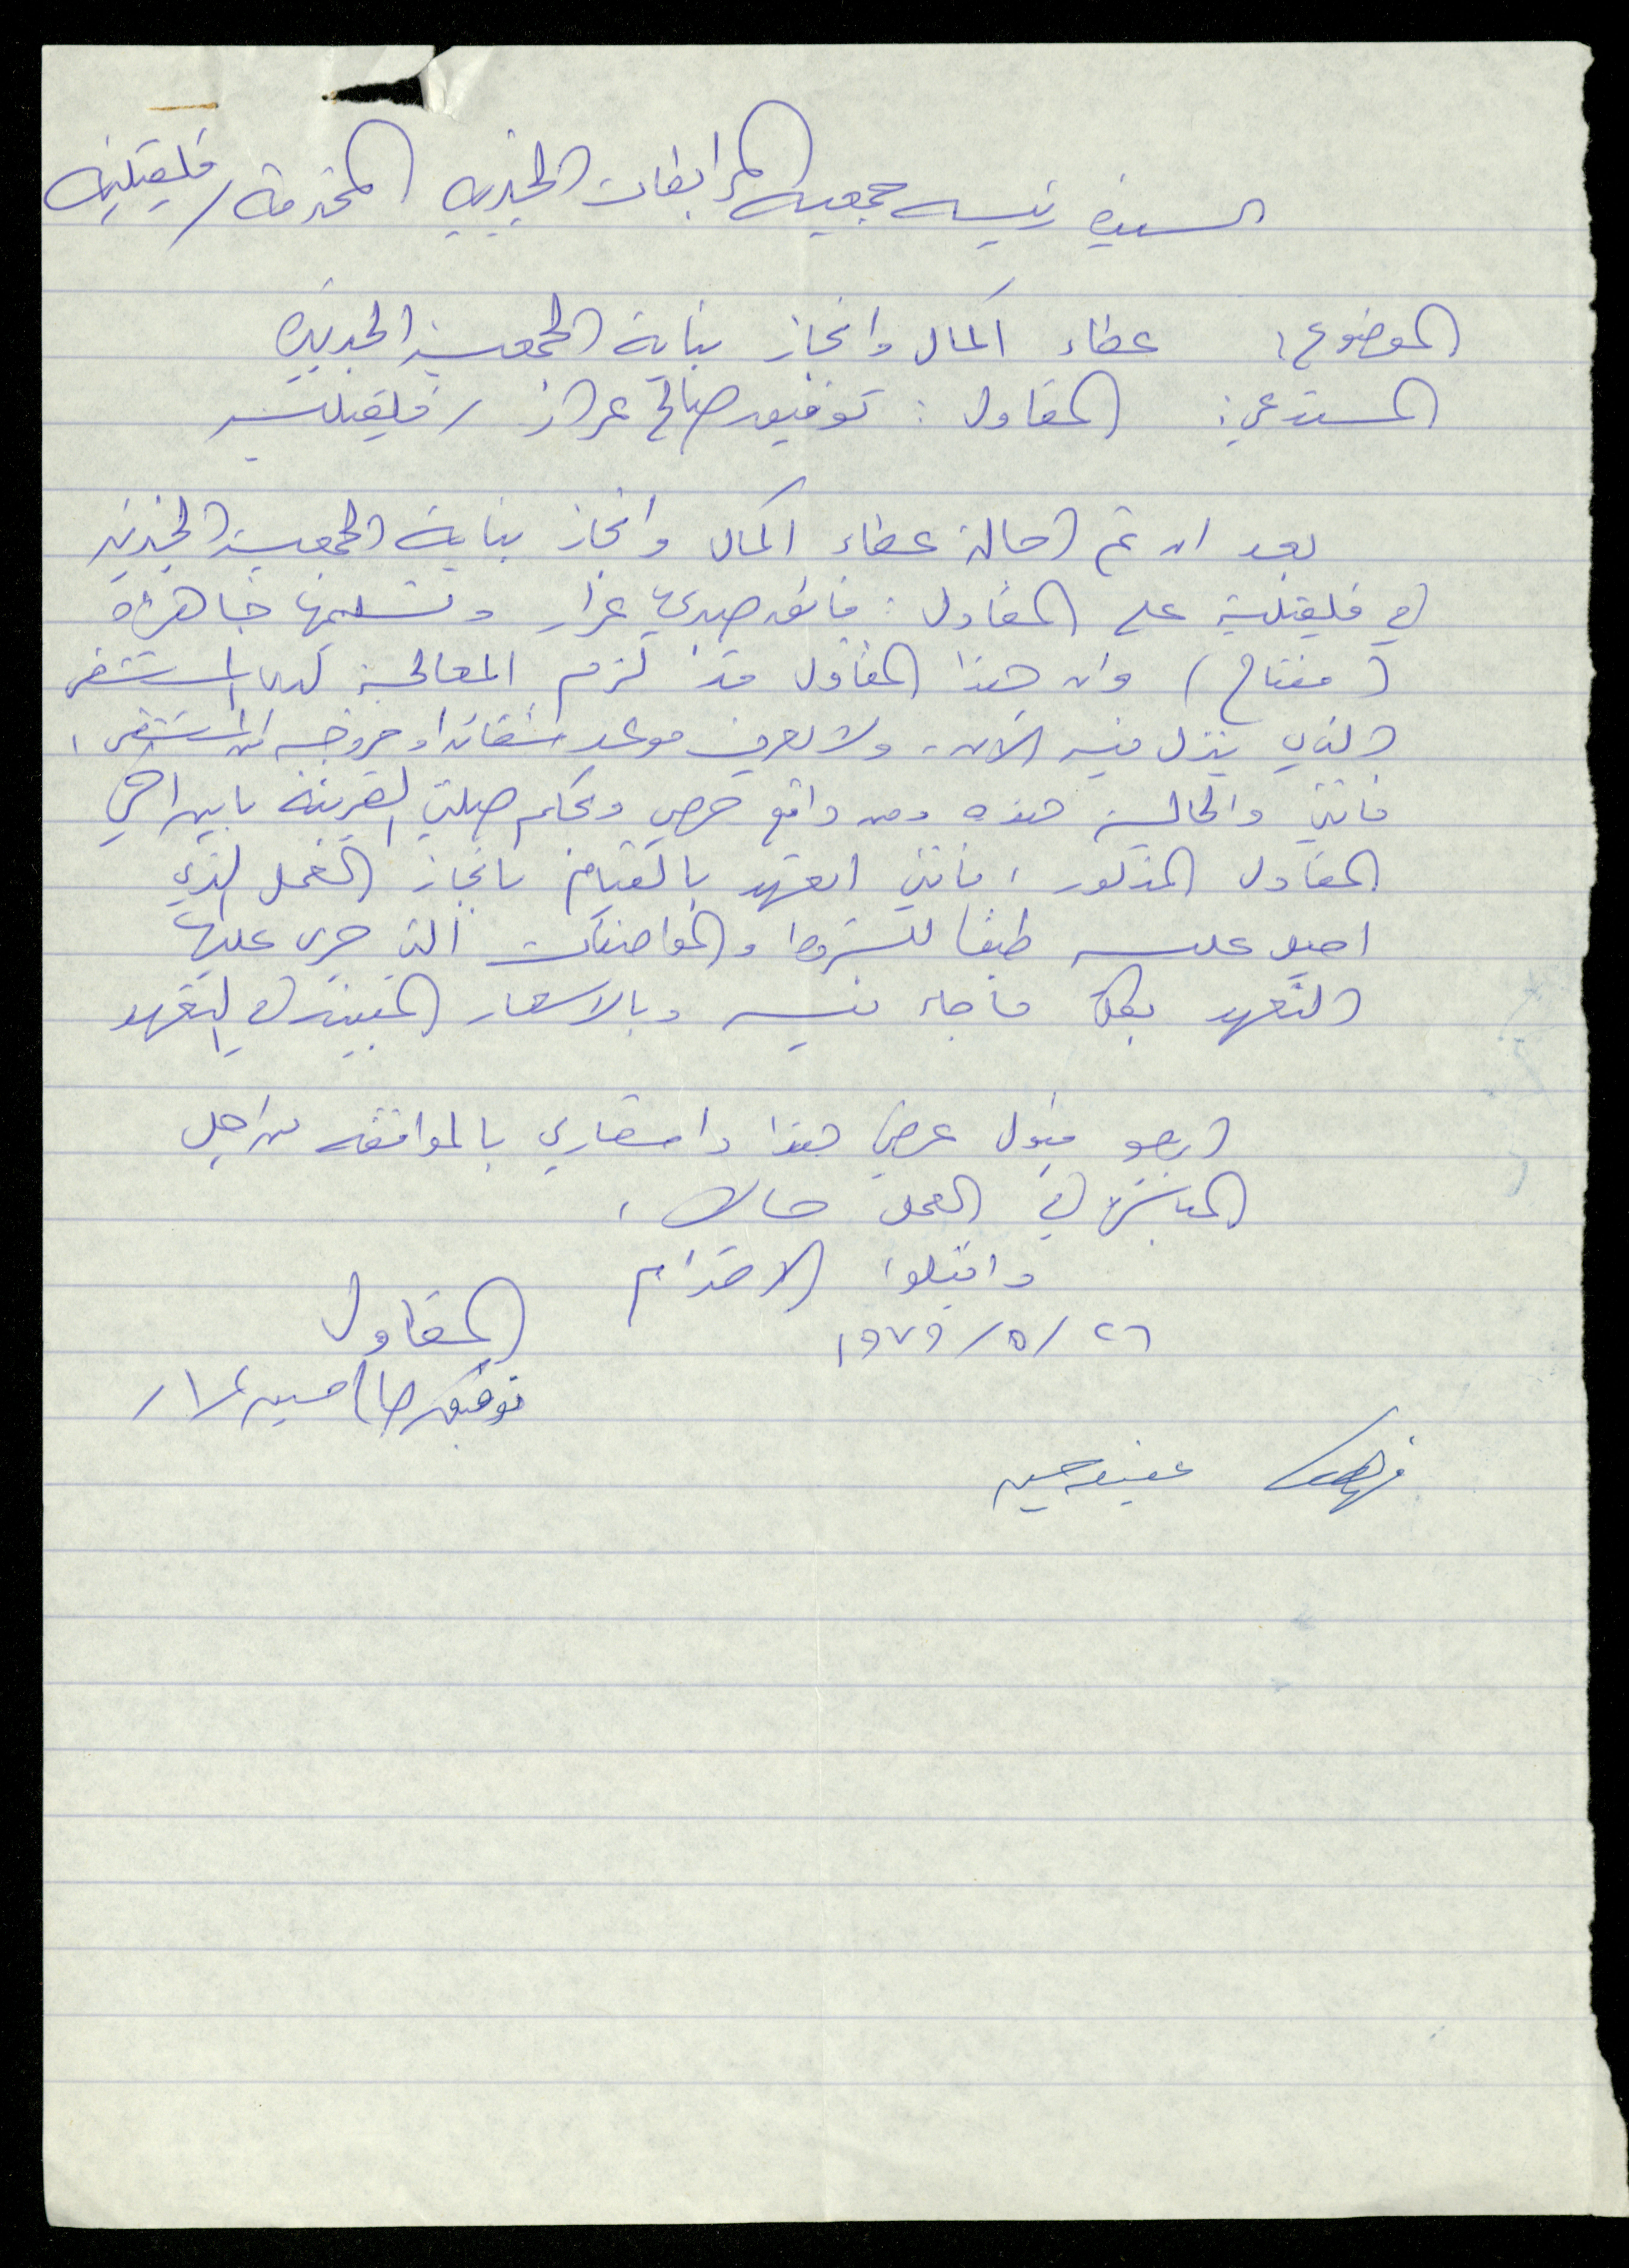 السيدة رئيسه جمعيه المرابطات الخيريه المحترمة / قلقيليه
الموضوع: عطاء اكمال وانجاز بناية الجمعية الجديدة
المستدعي: المقاول: توفيق صالح عرار / قلقيلية
بعد ان تم احالة عطاء اكمال وانجاز بناية الجمعية الخيرية
في قلقيلية على المقاول: فائق صبري عرار وتسليمها جاهزة
(مفتاح) وان هذا المقاول قد لزم المعالجة لدى المستشفى
الذي ينزل فيه الان. ولا يعرف موعد شفائه او خروجه من المستشفى،
فانني والحالة هذه ومن واقع حرصي وبحكم صلتي القريبة بابن اخي
المقاول المذكور، فانني اتعهد بالقيام بانجاز العمل الذي
احيل عليه طبقا للشروط والمواصفات التي جرى عليها
التعهد بكل ما جاء فيه وبالاسعار المبينة في التعهد
ارجو قبول عرضي هذا واشعاري بالموافقه من اجل
المباشرة في العمل حالا،
واقبلوا الاحترام
٢٦ / ٥ / ١٩٧٩
المقاول
توفيق صالح حسين عرار
حسين